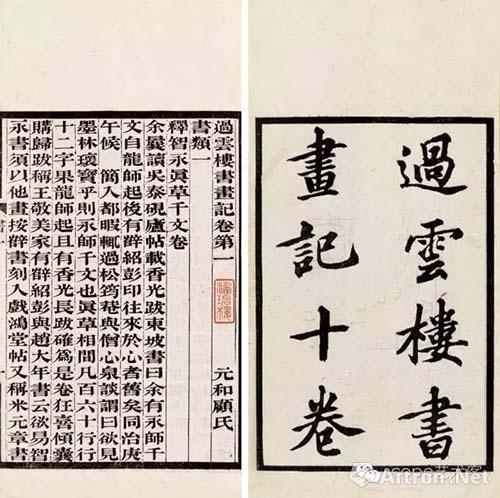 過雲樓書
畫記十卷
過雲樓書畫記卷第一 元和顧氏
書類一
釋智永眞草千文卷
余曩讀吳泰硯廬帖載香光跋東坡書曰余有永師千
文自龍師起後有辥紹彭印往來於心者舊矣同治庚
午候 簡入都暇輒過松筠菴與僧心泉談謂曰欲見
墨林瓌寶乎則永師千文也眞草相間凡百六十行行
十二字果龍師起且有香光長跋確為是卷狂喜傾囊
購歸跋稱王敬美家有辥紹彭與趙大年書云欲易智
永書須以他畫按辥書刻入戲鴻堂帖又稱米元章書
Artron.Net